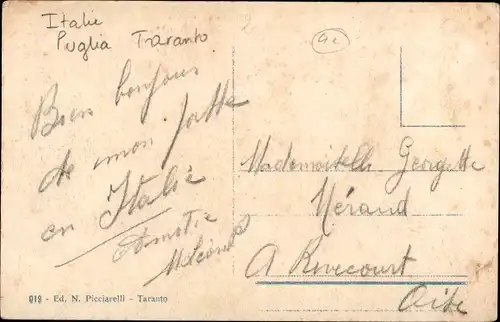 Italie
Puglia Taranto
9e
Bien bonjour
de mon
en Italie
Amitié
Mademoiselle Georgette
Mérand
A Rivecourt
Oise
019 - Ed. N. Picciarelli - Taranto